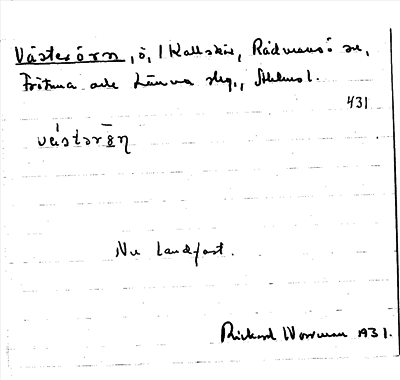 Västerörn, ö, i Kallskär, Rådmansö sn,
Frötuna och Länna skg., Sthlms l.
431
västərö̱ṇ
Nu landfast.
Rickard Worman 1931.